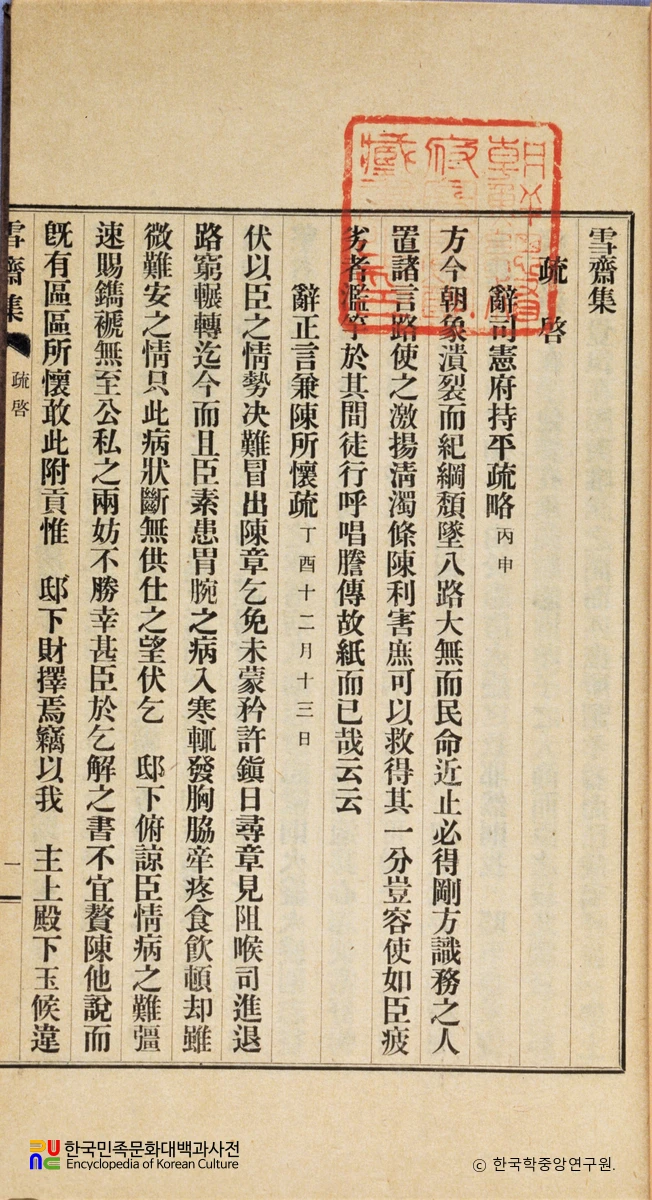 雪齋集
疏啓
辭司憲府持平疏略 丙申
方今朝象潰裂而紀綱頹墜八路大無而民命近止必得剛方識務之人
置諸言路使之激揚淸濁條陳利害庶可以救得其一分豈容使如臣疲
劣者濫竽於其間徒行呼唱謄傳故紙而已哉云云
辭正言兼陳所懷疏 丁酉十二月十三日
伏以臣之情勢决難冒出陳章乞免未蒙矜許鎭日尋章見阻喉司進退
路窮輾轉迄今而且臣素患胃腕之病入寒輒發胸脇牽疼食飮頓却雖
微難安之情只此病狀斷無供仕之望伏乞 邸下俯諒臣情病之難彊
速賜鐫褫無至公私之兩妨不勝幸甚臣於乞解之書不宜贅陳他說而
旣有區區所懷敢此附貢惟 邸下財擇焉竊以我 主上殿下玉候違
雪齋集 疏啓 一
한국민족문화대백과사전
Encyclopedia of Korean Culture
ⓒ 한국학중앙연구원.